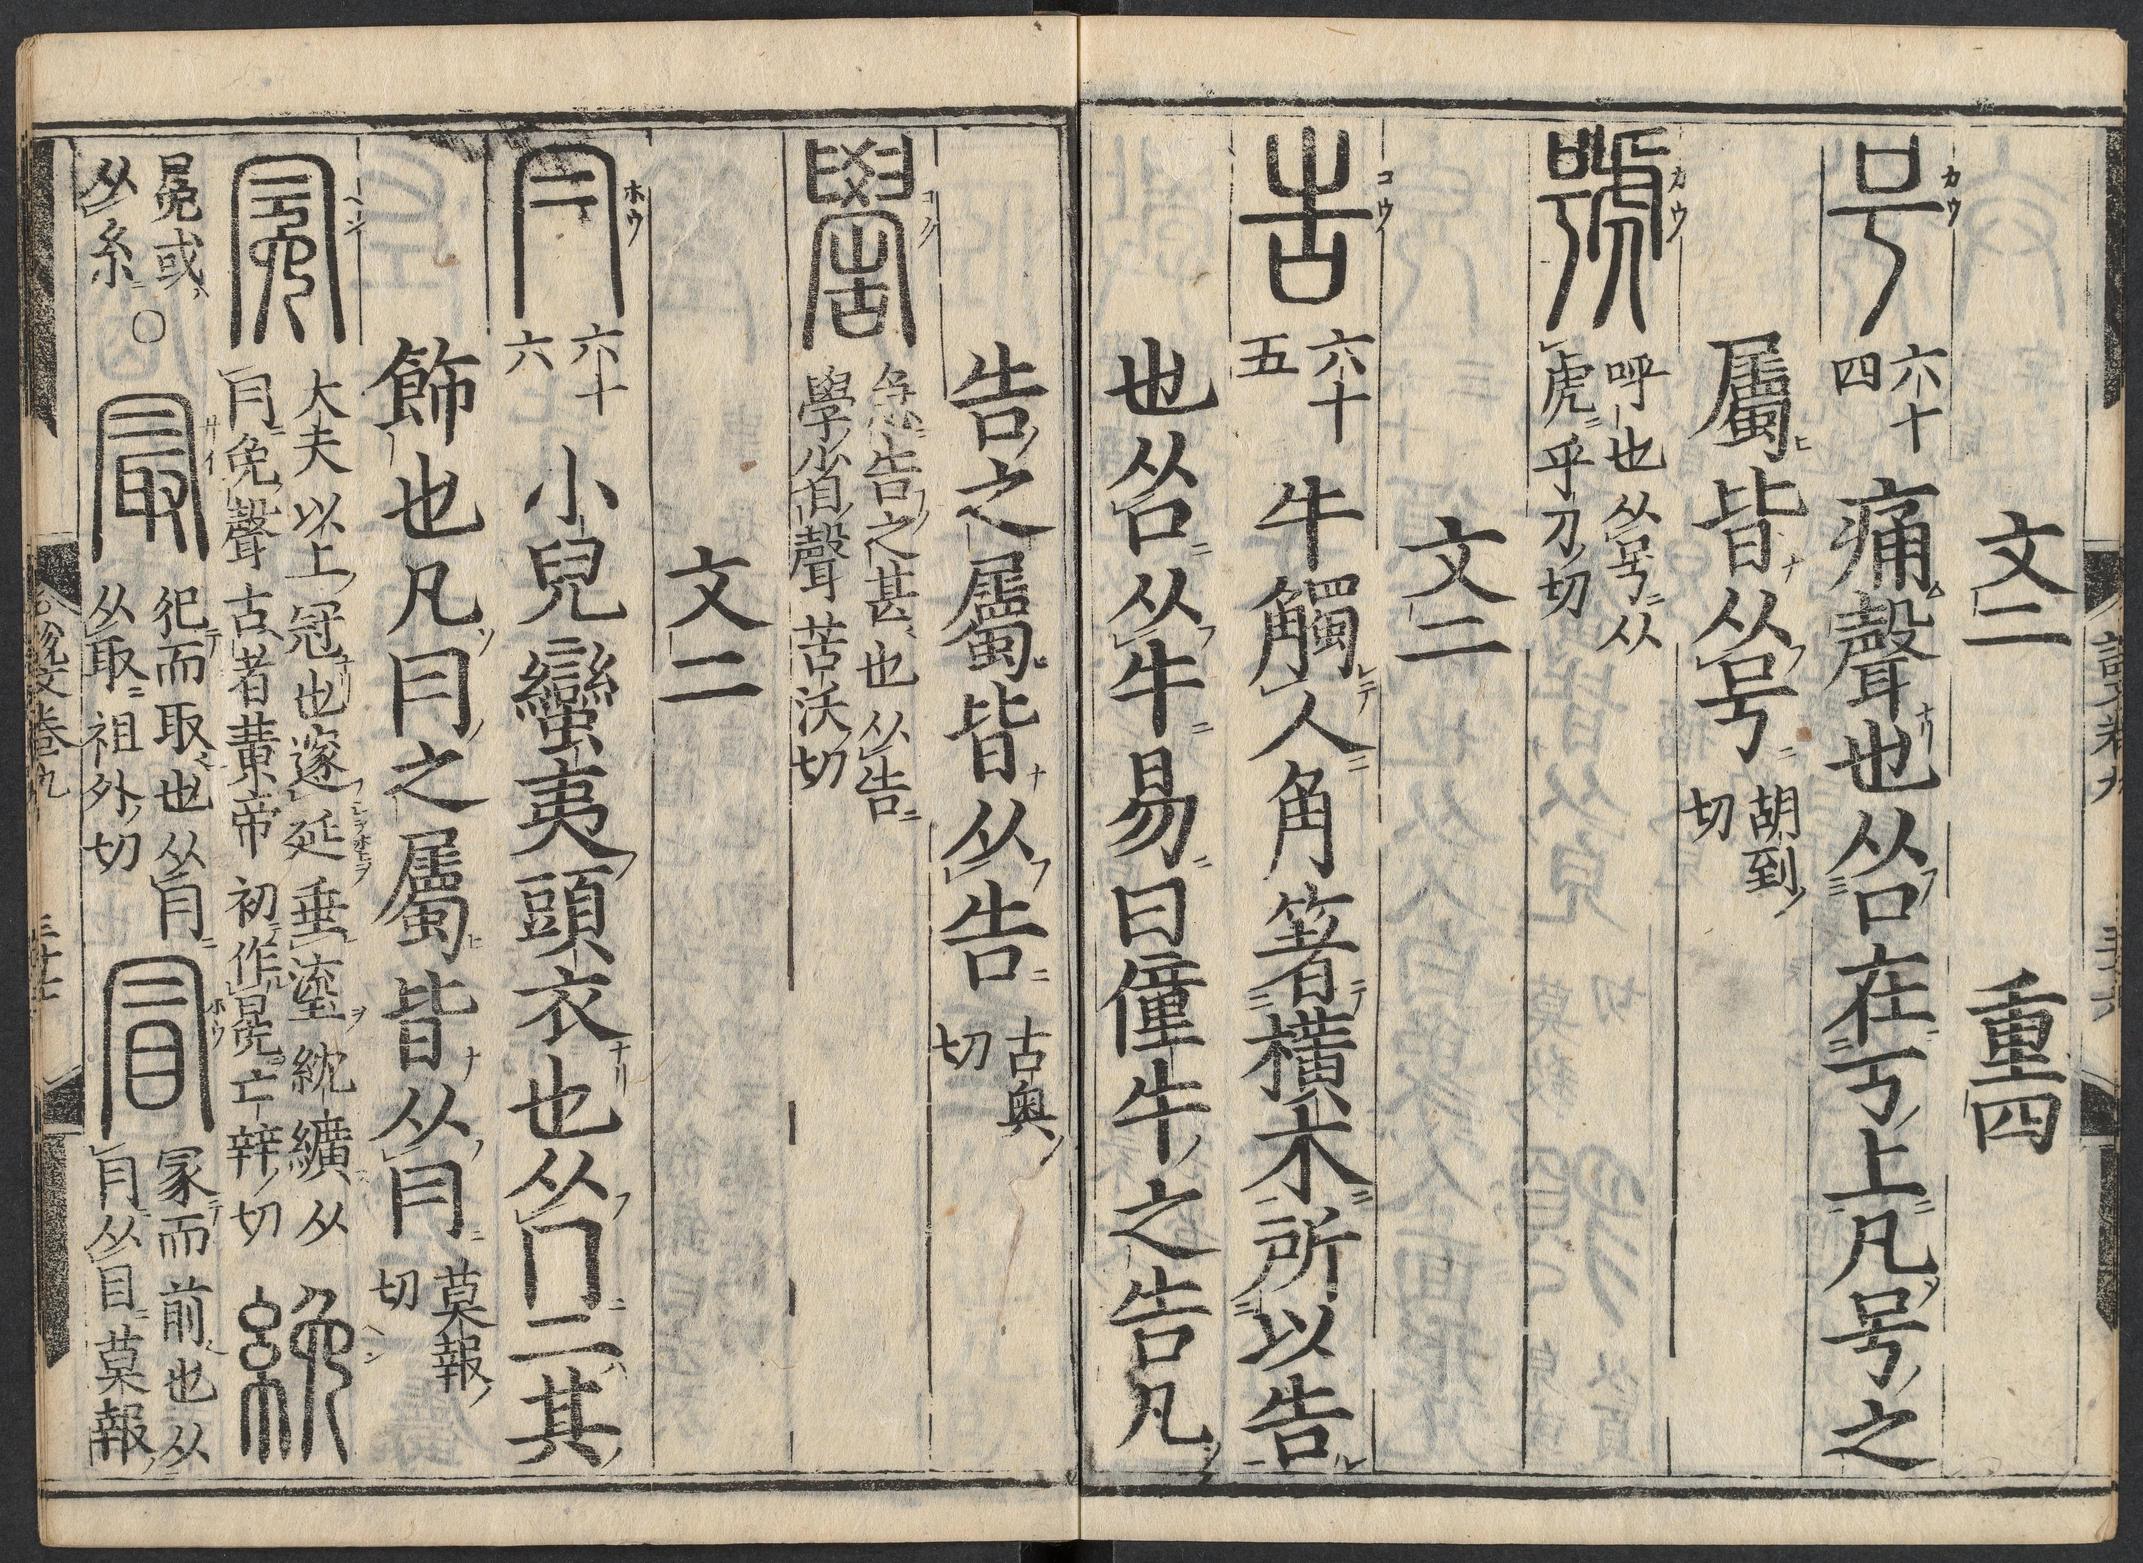 文二　重四
号　六十四　痛聲也从口在丂上凡号之
屬皆从号　胡到切
號　呼也从号从
虎乎刀切
文二
告　六十五　牛觸人角箸橫木所以告
也从口从牛易曰僮牛之告凡
告之屬皆从告　古奥切
嚳　急告之甚也从告
學省聲苦沃切
文二
冃　六十六　小兒蠻夷頭衣也从冂二其
飾也凡冃之屬皆从冃　莫報切
冕　大夫以上冠也邃延垂瑬紞纊从
冃免聲古者黃帝初作冕亡辡切　絻
冕或
从糸〇
最　犯而取也从冃
从取祖外切
冒　冡而前也从
冃从目莫報
說文卷九